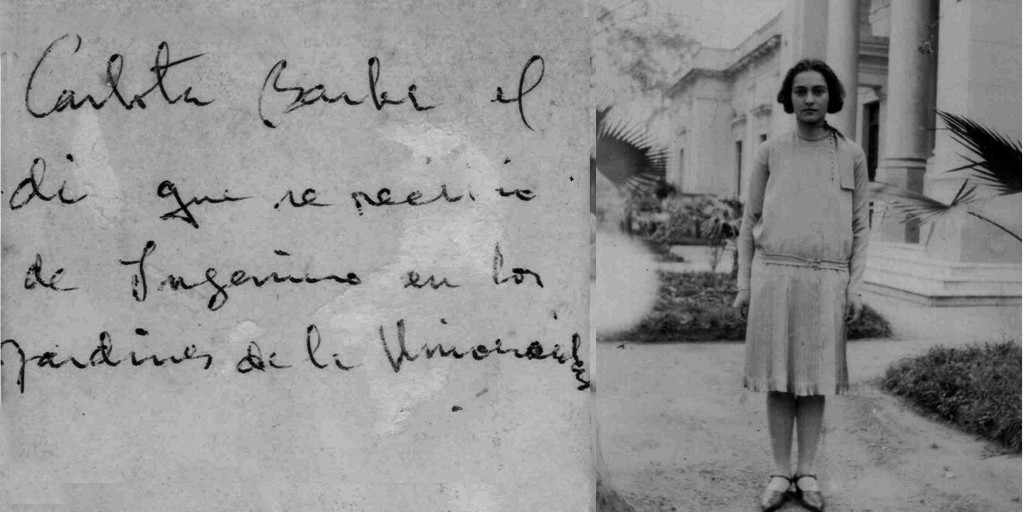 Carlota Barbe el
di que se recibio
de Ingeniero en los
jardines de la Universidad